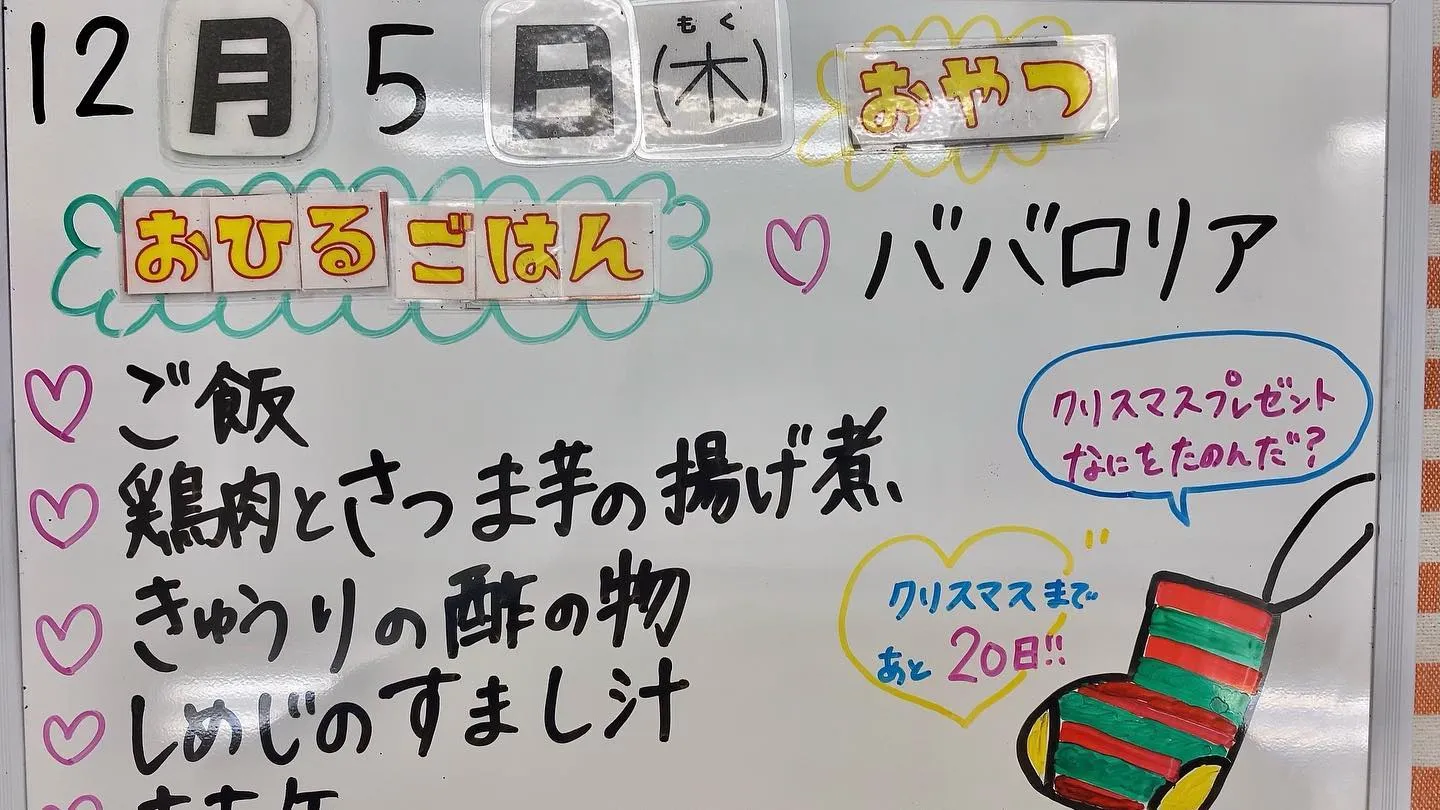 12月5日(木)
もく
おやつ
おひるごはん
ババロリア
ご飯
鶏肉とさつま芋の揚げ煮
きゅうりの酢の物
しめじのすまし汁
クリスマスプレゼント
なにをたのんだ?
クリスマスまで
あと20日!!